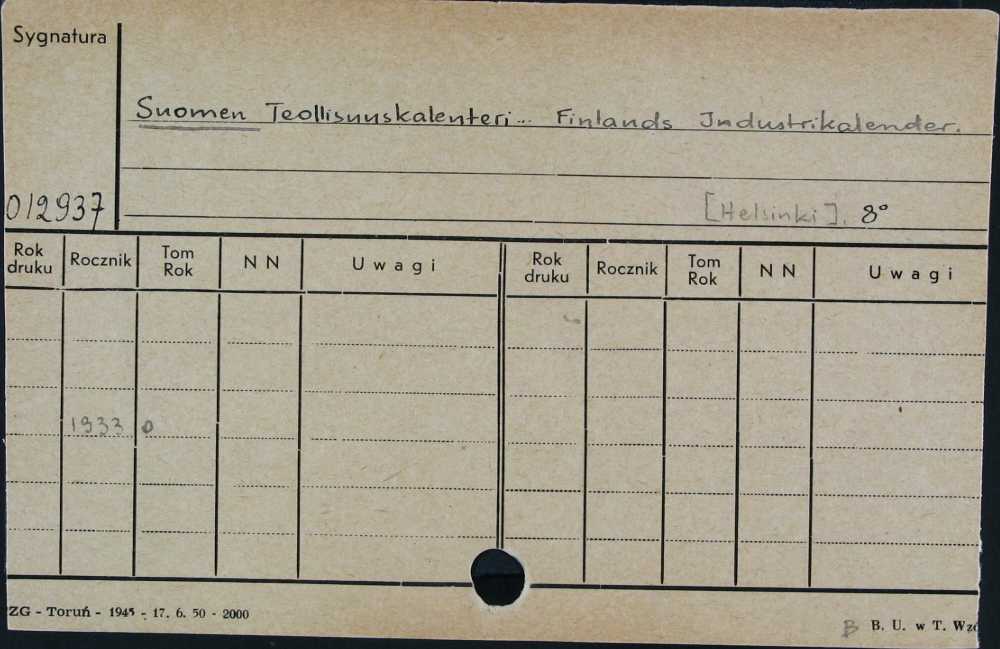 Sygnatura
Suomen Teollisuuskalenteri... Finlands Industrikalender.
012937
[Helsinki]. 8°
Rok druku Rocznik Tom Rok N N Uwagi Rok druku Rocznik Tom Rok N N Uwagi
1933 0
ZG - Toruń - 1945 - 17. 6. 50 - 2000
B B. U. w T. Wzó